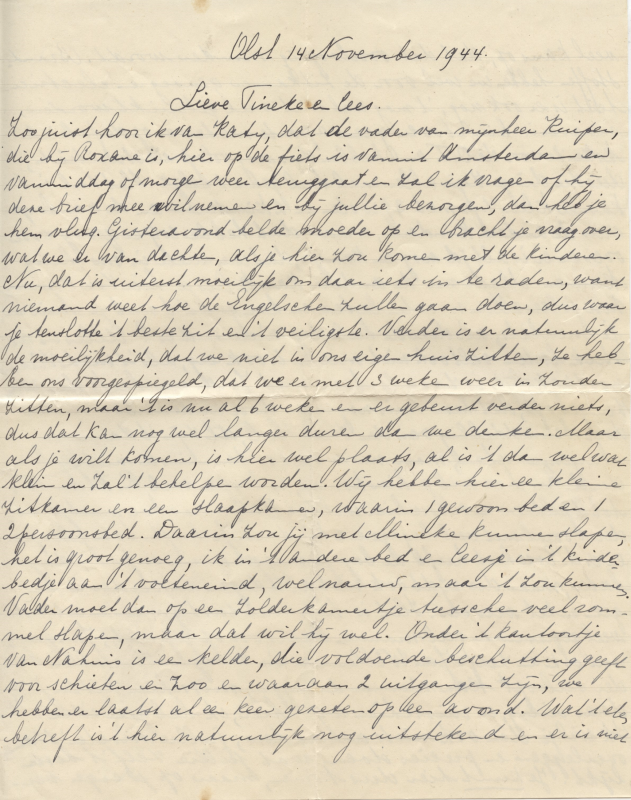 Olst 14 November 1944.
Lieve Tineke en Cees.
Zoo juist hoor ik van Katy, dat de vader van mijnheer Kuiper,
die bij Roxane is, hier op de fiets is vanuit Amsterdam en
vanmiddag of morge weer teruggaat en zal ik vragen of hij
deze brief mee wil nemen en bij jullie bezorgen, dan heb je
hem vlug. Gisteravond belde moeder op en bracht je vraag over,
wat we er van dachten, als je hier zou komen met de kinderen.
Nu, dat is uiterst moeilijk om daar iets in te raden, want
niemand weet hoe de Engelschen zullen gaan doen, dus waar
je tenslotte 't beste zit en 't veiligste. Verder is er natuurlijk
de moeilijkheid, dat we niet in ons eigen huis zitten, ze heb-
ben ons voorgespiegeld, dat we er met 3 weke weer in zouden
zitten, maar 't is nu al 6 weke en er gebeurt verder niets,
dus dat kan nog wel langer duren dan we denke. Maar
als je wilt komen, is hier wel plaats, al is 't dan wel wat
klein en zal 't behelpe worden. Wij hebben hier een kleine
zitkamer en een slaapkamer, waarin 1 gewoon bed en 1
2persoonsbed. Daarin zou jij met Mineke kunne slapen,
het is groot genoeg, ik in 't andere bed en Ceesje in 't kinde-
bedje aan 't voeteneind, wel nauw, maar 't zou kunnen.
Vader moet dan op een zolderkamertje tusschen veel rom-
mel slapen, maar dat wil hij wel. Onder 't kantoortje
van Nahuis is een kelder, die voldoende beschutting geeft
voor schieten en zoo en waaraan 2 uitgangen zijn, we
hebben er laatst al een keer gezeten op een avond. Wat 't eten
betreft is 't hier natuurlijk nog uitstekend en er is niet